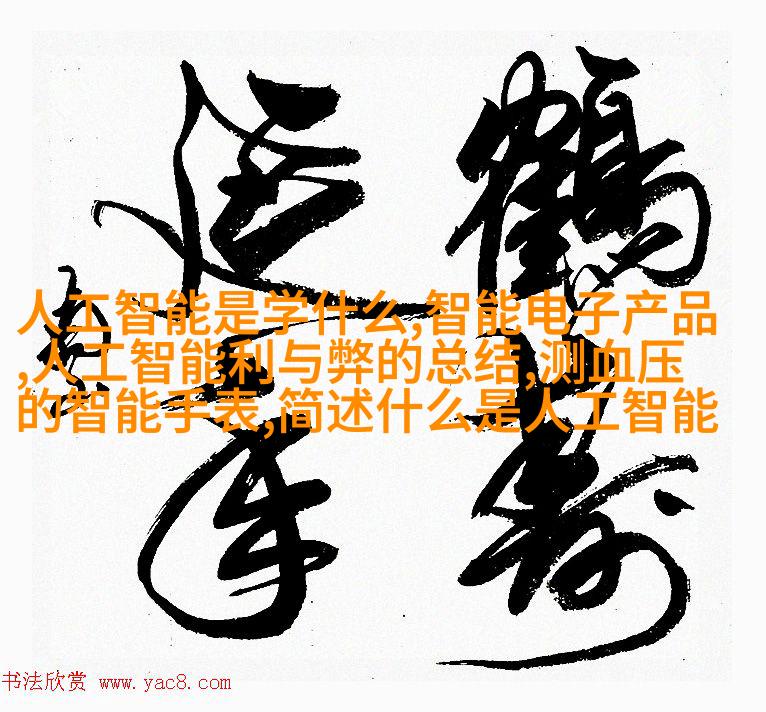 鶴壽
延年
人工智能是学什么,智能电子产品
,人工智能利与弊的总结,测血压
的智能手表,简述什么是人工智能
书法欣赏 www.yac8.com